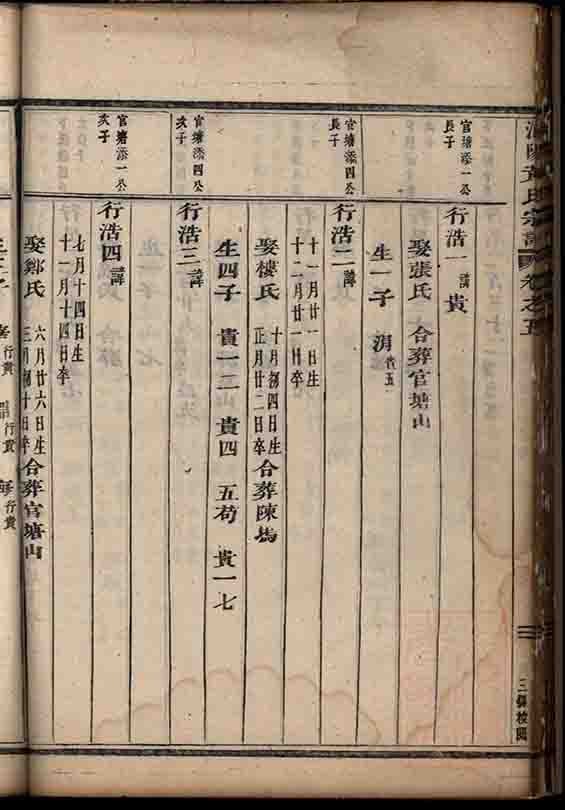 氏宗譜 卷之五
三保校閱
官塘添一公
長子
行浩一 諱 貴
娶張氏 合葬官塘山
生一子
官塘添四公
長子
行浩二 諱
十一月廿一日生
十二月廿一日卒
娶樓氏 十月初四日生
正月廿二日卒 合葬陳塢
生四子 貴一二 貴四 五苟 貴一七
官塘添四公
次子
行浩三 諱
官塘添一公
次子
行浩四 諱
七月十四日生
十一月十四日卒
娶鄭氏 六月廿六日生
三月初十日卒 合葬官塘山
行貴
行貴
行貴